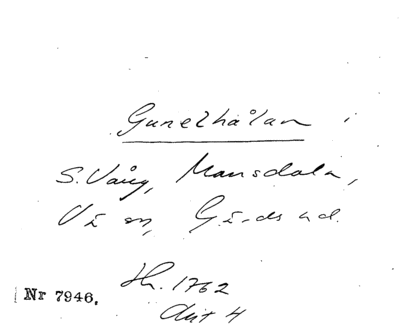 Gunelhålan
S. Vång, Mansdala,
Vä sn, Gärds hd.
Nr 7946.
Hr. 1762
Akt 4